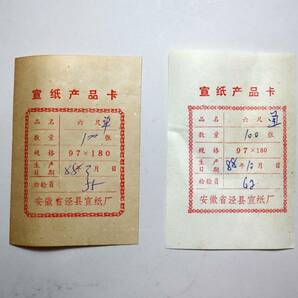 宣纸产品卡
品名 六尺单
数量 100张
规格 97×180
生产日期 85年 月 日
检验员
安徽省泾县宣纸厂
宣纸产品卡
品名 六尺单
数量 100张
规格 97×180
生产日期 88年10月 日
检验员 62
安徽省泾县宣纸厂